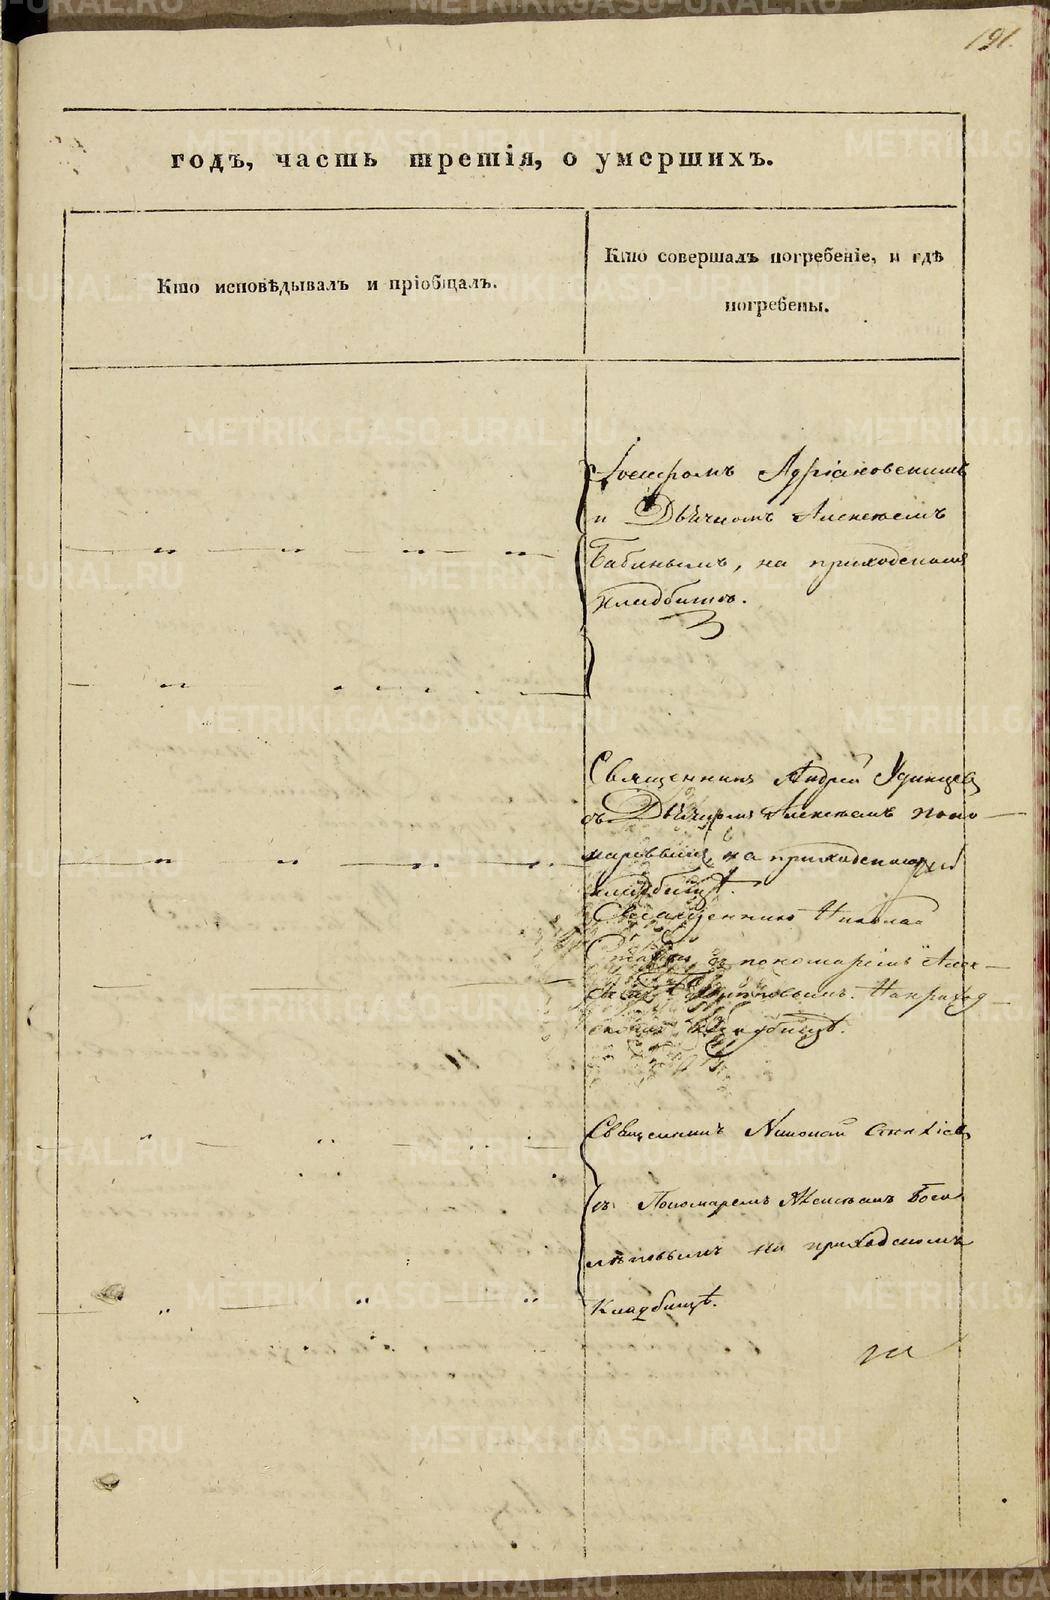 191.
годъ, часть третія, о умершихъ.
Кто исповѣдывалъ и пріобщалъ.
Кто совершалъ погребеніе, и гдѣ
погребены.
Адріановскимъ
и Дьячкомъ Алексѣемъ
Бабинымъ, на приходскомъ
кладбищѣ.
Священникъ Андрей Удинцевъ
съ Дьячкомъ Алексѣемъ Поно
маревымъ, на приходскомъ
кладбищѣ.
Священникъ Николай
съ пономаремъ Алек
На приход
скомъ кладбищѣ.
Священникъ Николай
съ Пономаремъ Алексѣемъ Бого
лѣповымъ на приходскомъ
Кладбищѣ.
METRIKI.GASO-URAL.RU